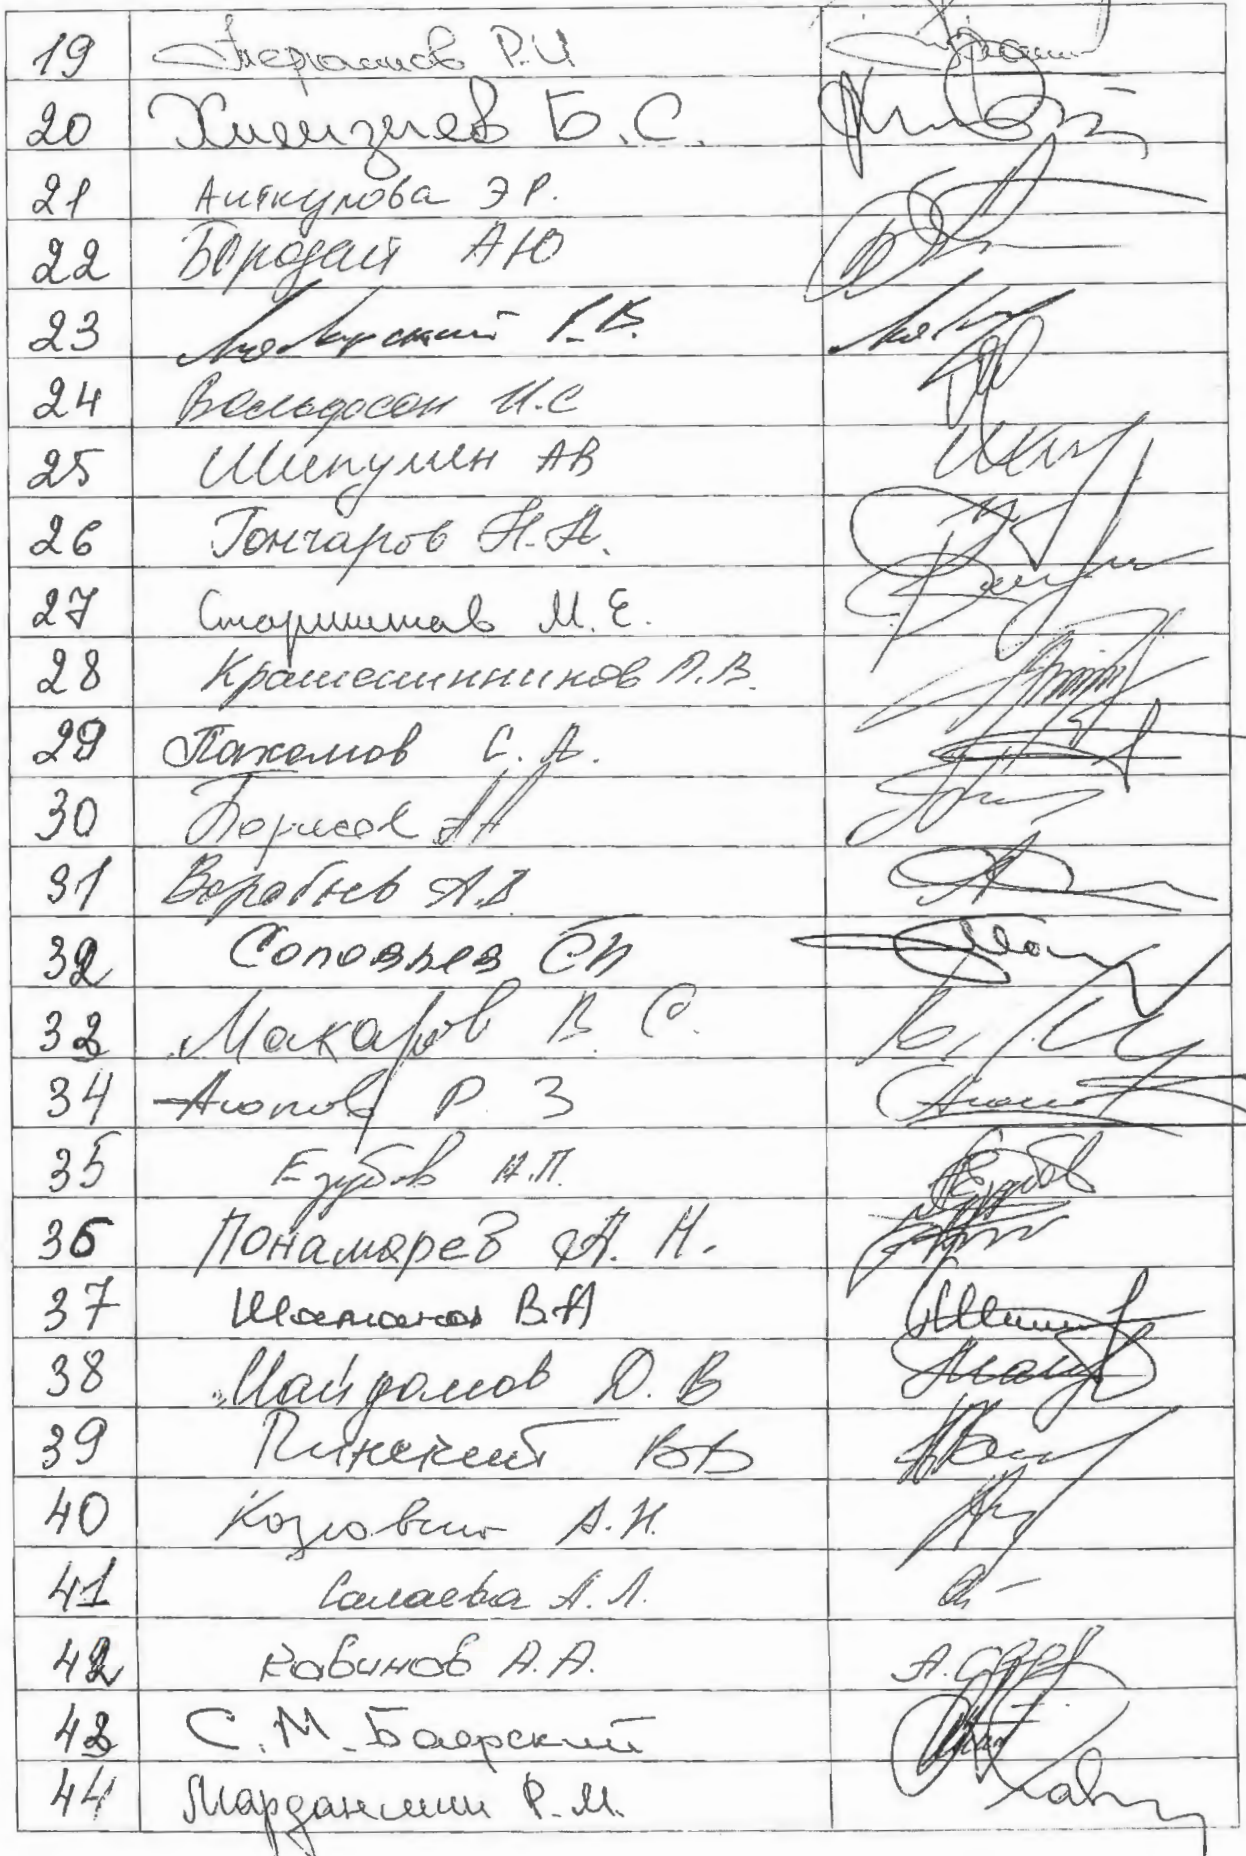 19 Терюшков Р.И
20 Хамзаев Б.С.
21 Аиткулова Э Р.
22 Бородай А Ю
23 Любарский Г.В.
24 Вольфсон И.С
25 Шипулин АВ
26 Гончаров Н.А.
27 Старшинов М.Е.
28 Крашенинников П.В.
29 Пахомов С.А.
30 Борисов АА
31 Воробьев А.В
32 Соловьев СИ
33 Макаров В С.
34 Аюпов Р З
35 Езубов А.П.
36 Понамарев А. Н.
37 Шаманов В.А
38 Майданов Д. В
39 Пинский ВВ
40 Козловский А.Н.
41 Салаева А.Л.
42 Кавинов А.А.
43 С.М. Боярский
44 Марданшин Р.М.